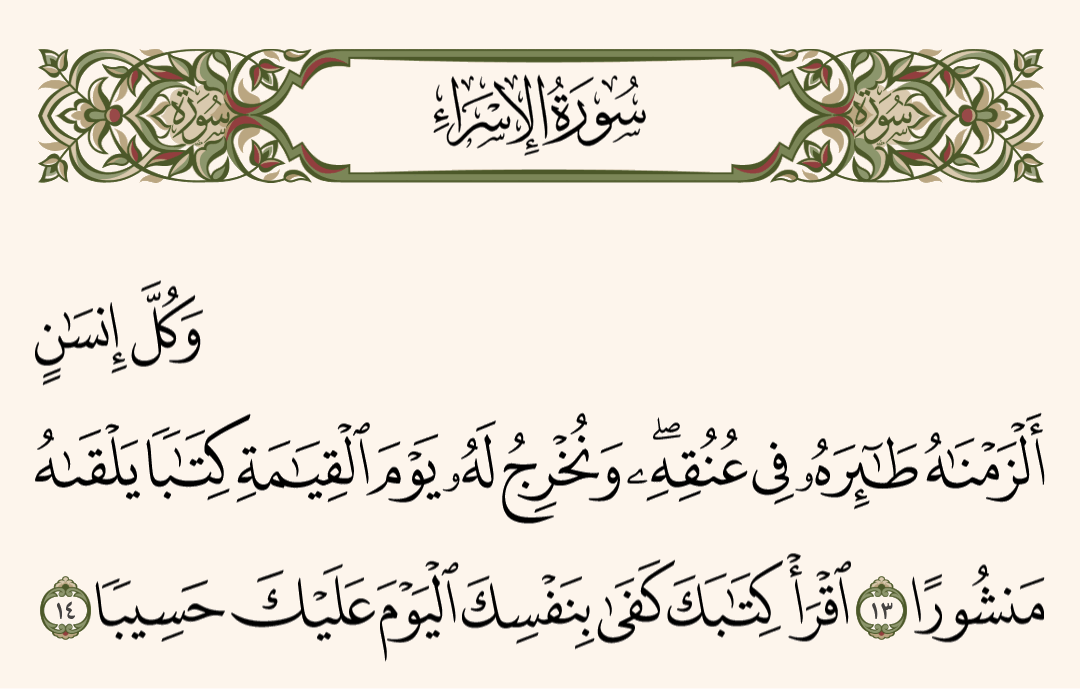 سُورَةُ الإِسْرَاءِ
سُورَة
سُورَة
وَكُلَّ إِنسَـٰنٍ
أَلۡزَمۡنَـٰهُ طَـٰٓئِرَهُۥ فِی عُنُقِهِۦۖ وَنُخۡرِجُ لَهُۥ یَوۡمَ ٱلۡقِیَـٰمَةِ كِتَـٰبࣰا یَلۡقَىٰهُ
مَنشُورًا ١٣ ٱقۡرَأۡ كِتَـٰبَكَ كَفَىٰ بِنَفۡسِكَ ٱلۡیَوۡمَ عَلَیۡكَ حَسِیبࣰا ١٤